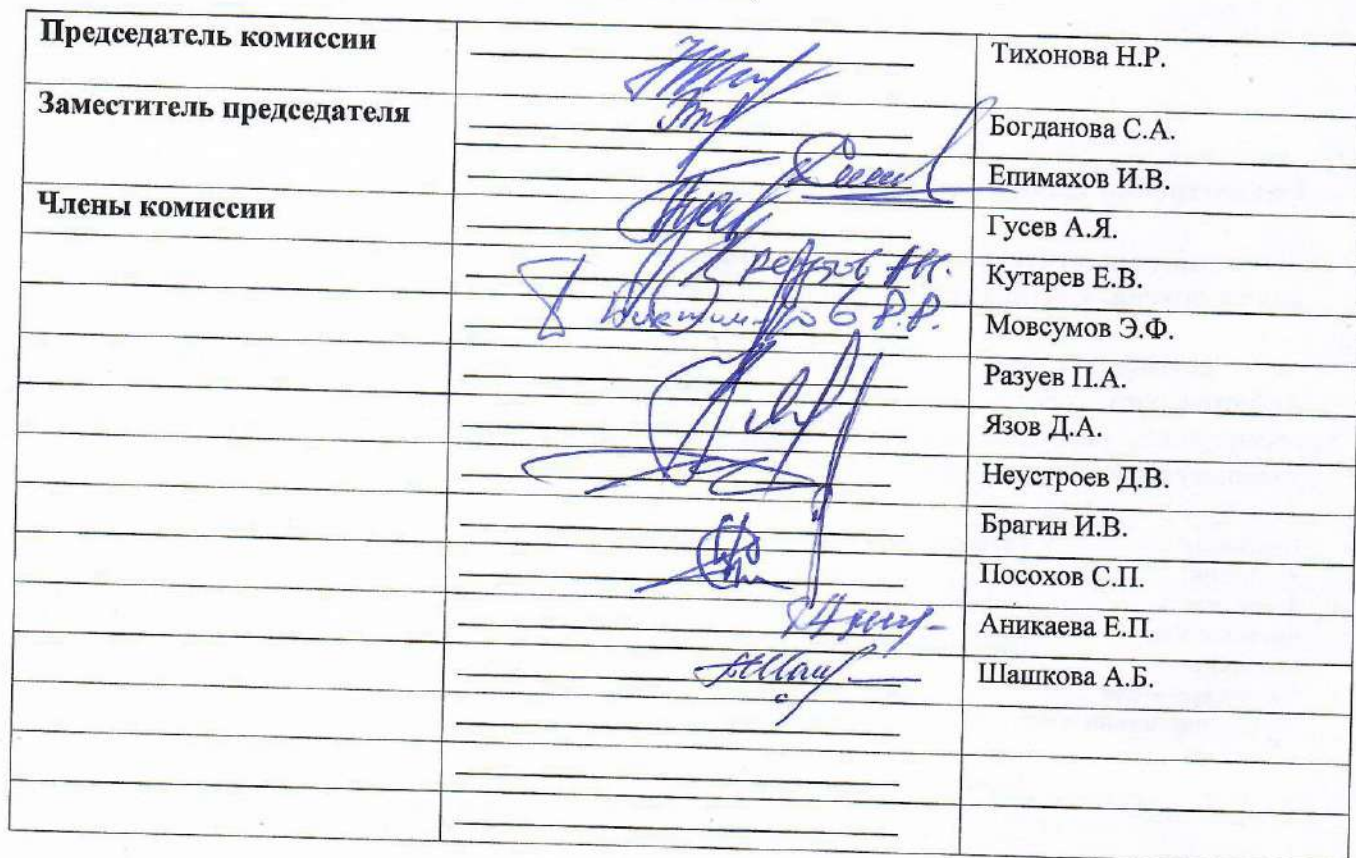 Председатель комиссии Тихонова Н.Р.
Заместитель председателя Богданова С.А.
Епимахов И.В.
Члены комиссии Гусев А.Я.
Кутарев Е.В.
Мовсумов Э.Ф.
Разуев П.А.
Язов Д.А.
Неустроев Д.В.
Брагин И.В.
Посохов С.П.
Аникаева Е.П.
Шашкова А.Б.